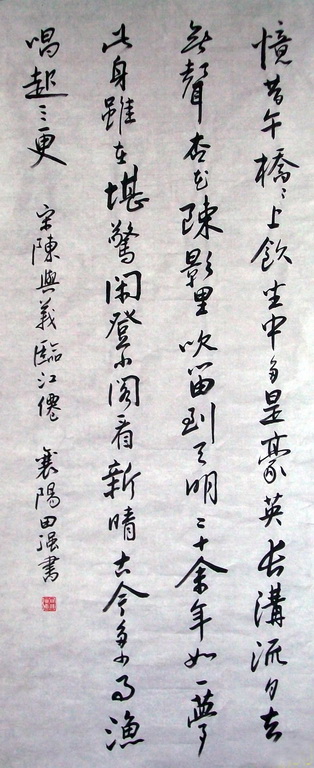 憶昔午橋々上飲坐中多是豪英長溝流月去
無聲杏花疎影里吹笛到天明二十余年如一夢
此身雖在堪驚閑登小閣看新晴古今多少事漁
唱起三更 宋陳與義臨江僊 襄陽田强書